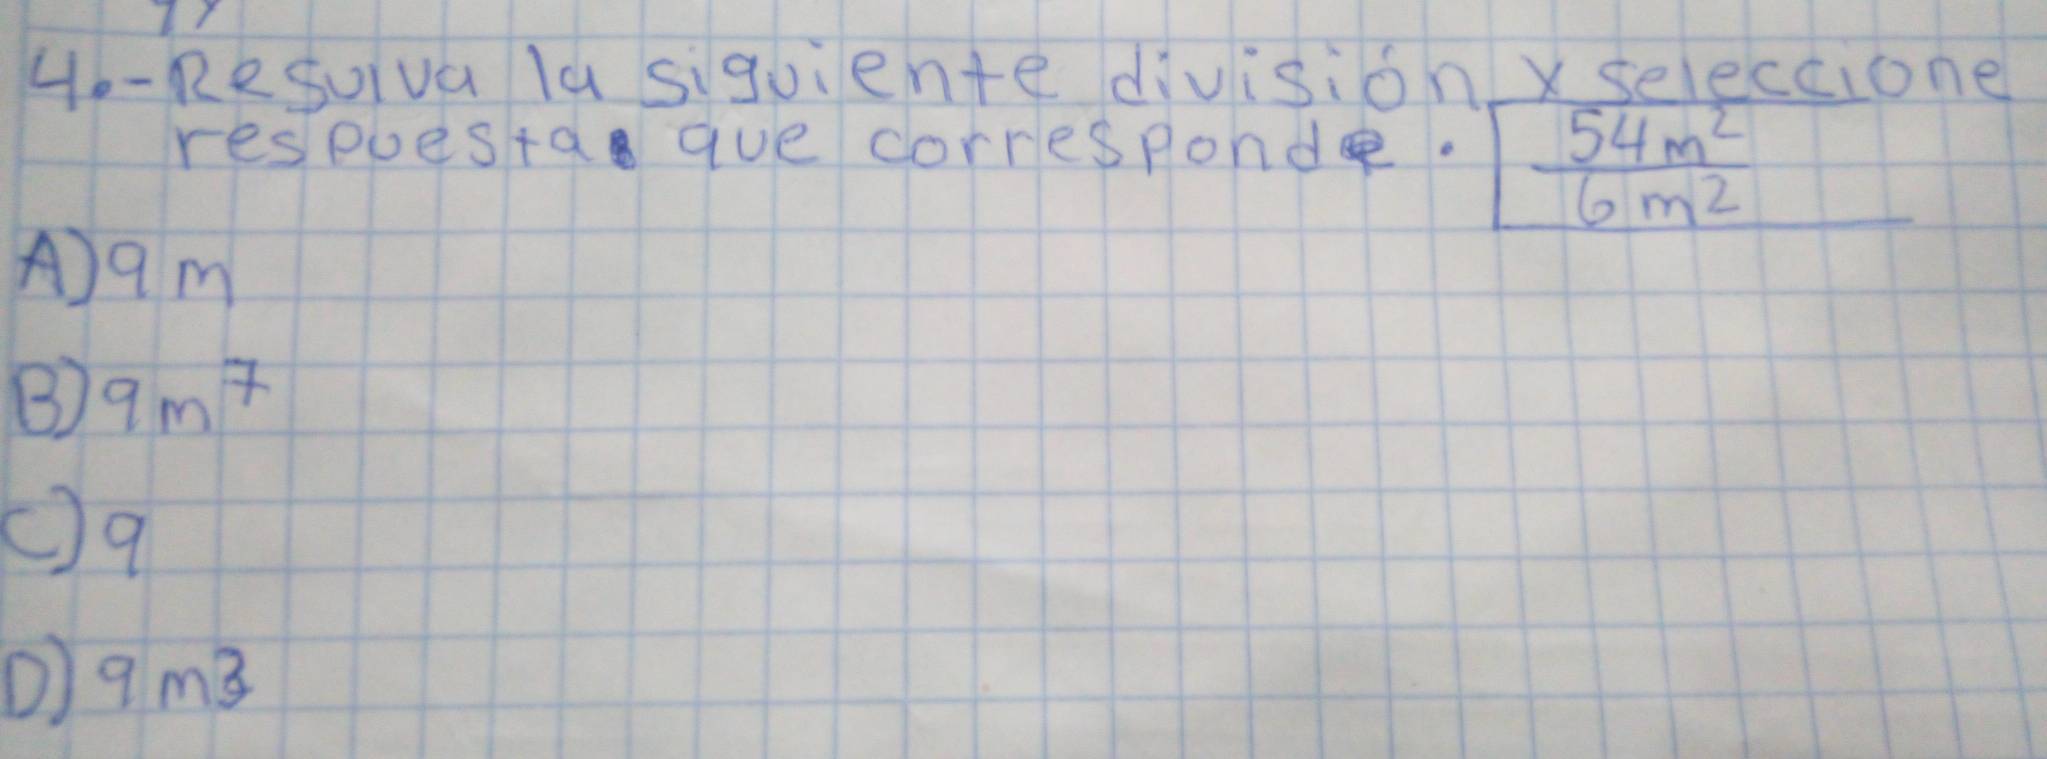 4.-Resulva la siguiente división y seleccione
respuesta que corresponde. 54m²
6m2
A) 9 m
B) 9 m⁷
C) 9
D) 9 m3